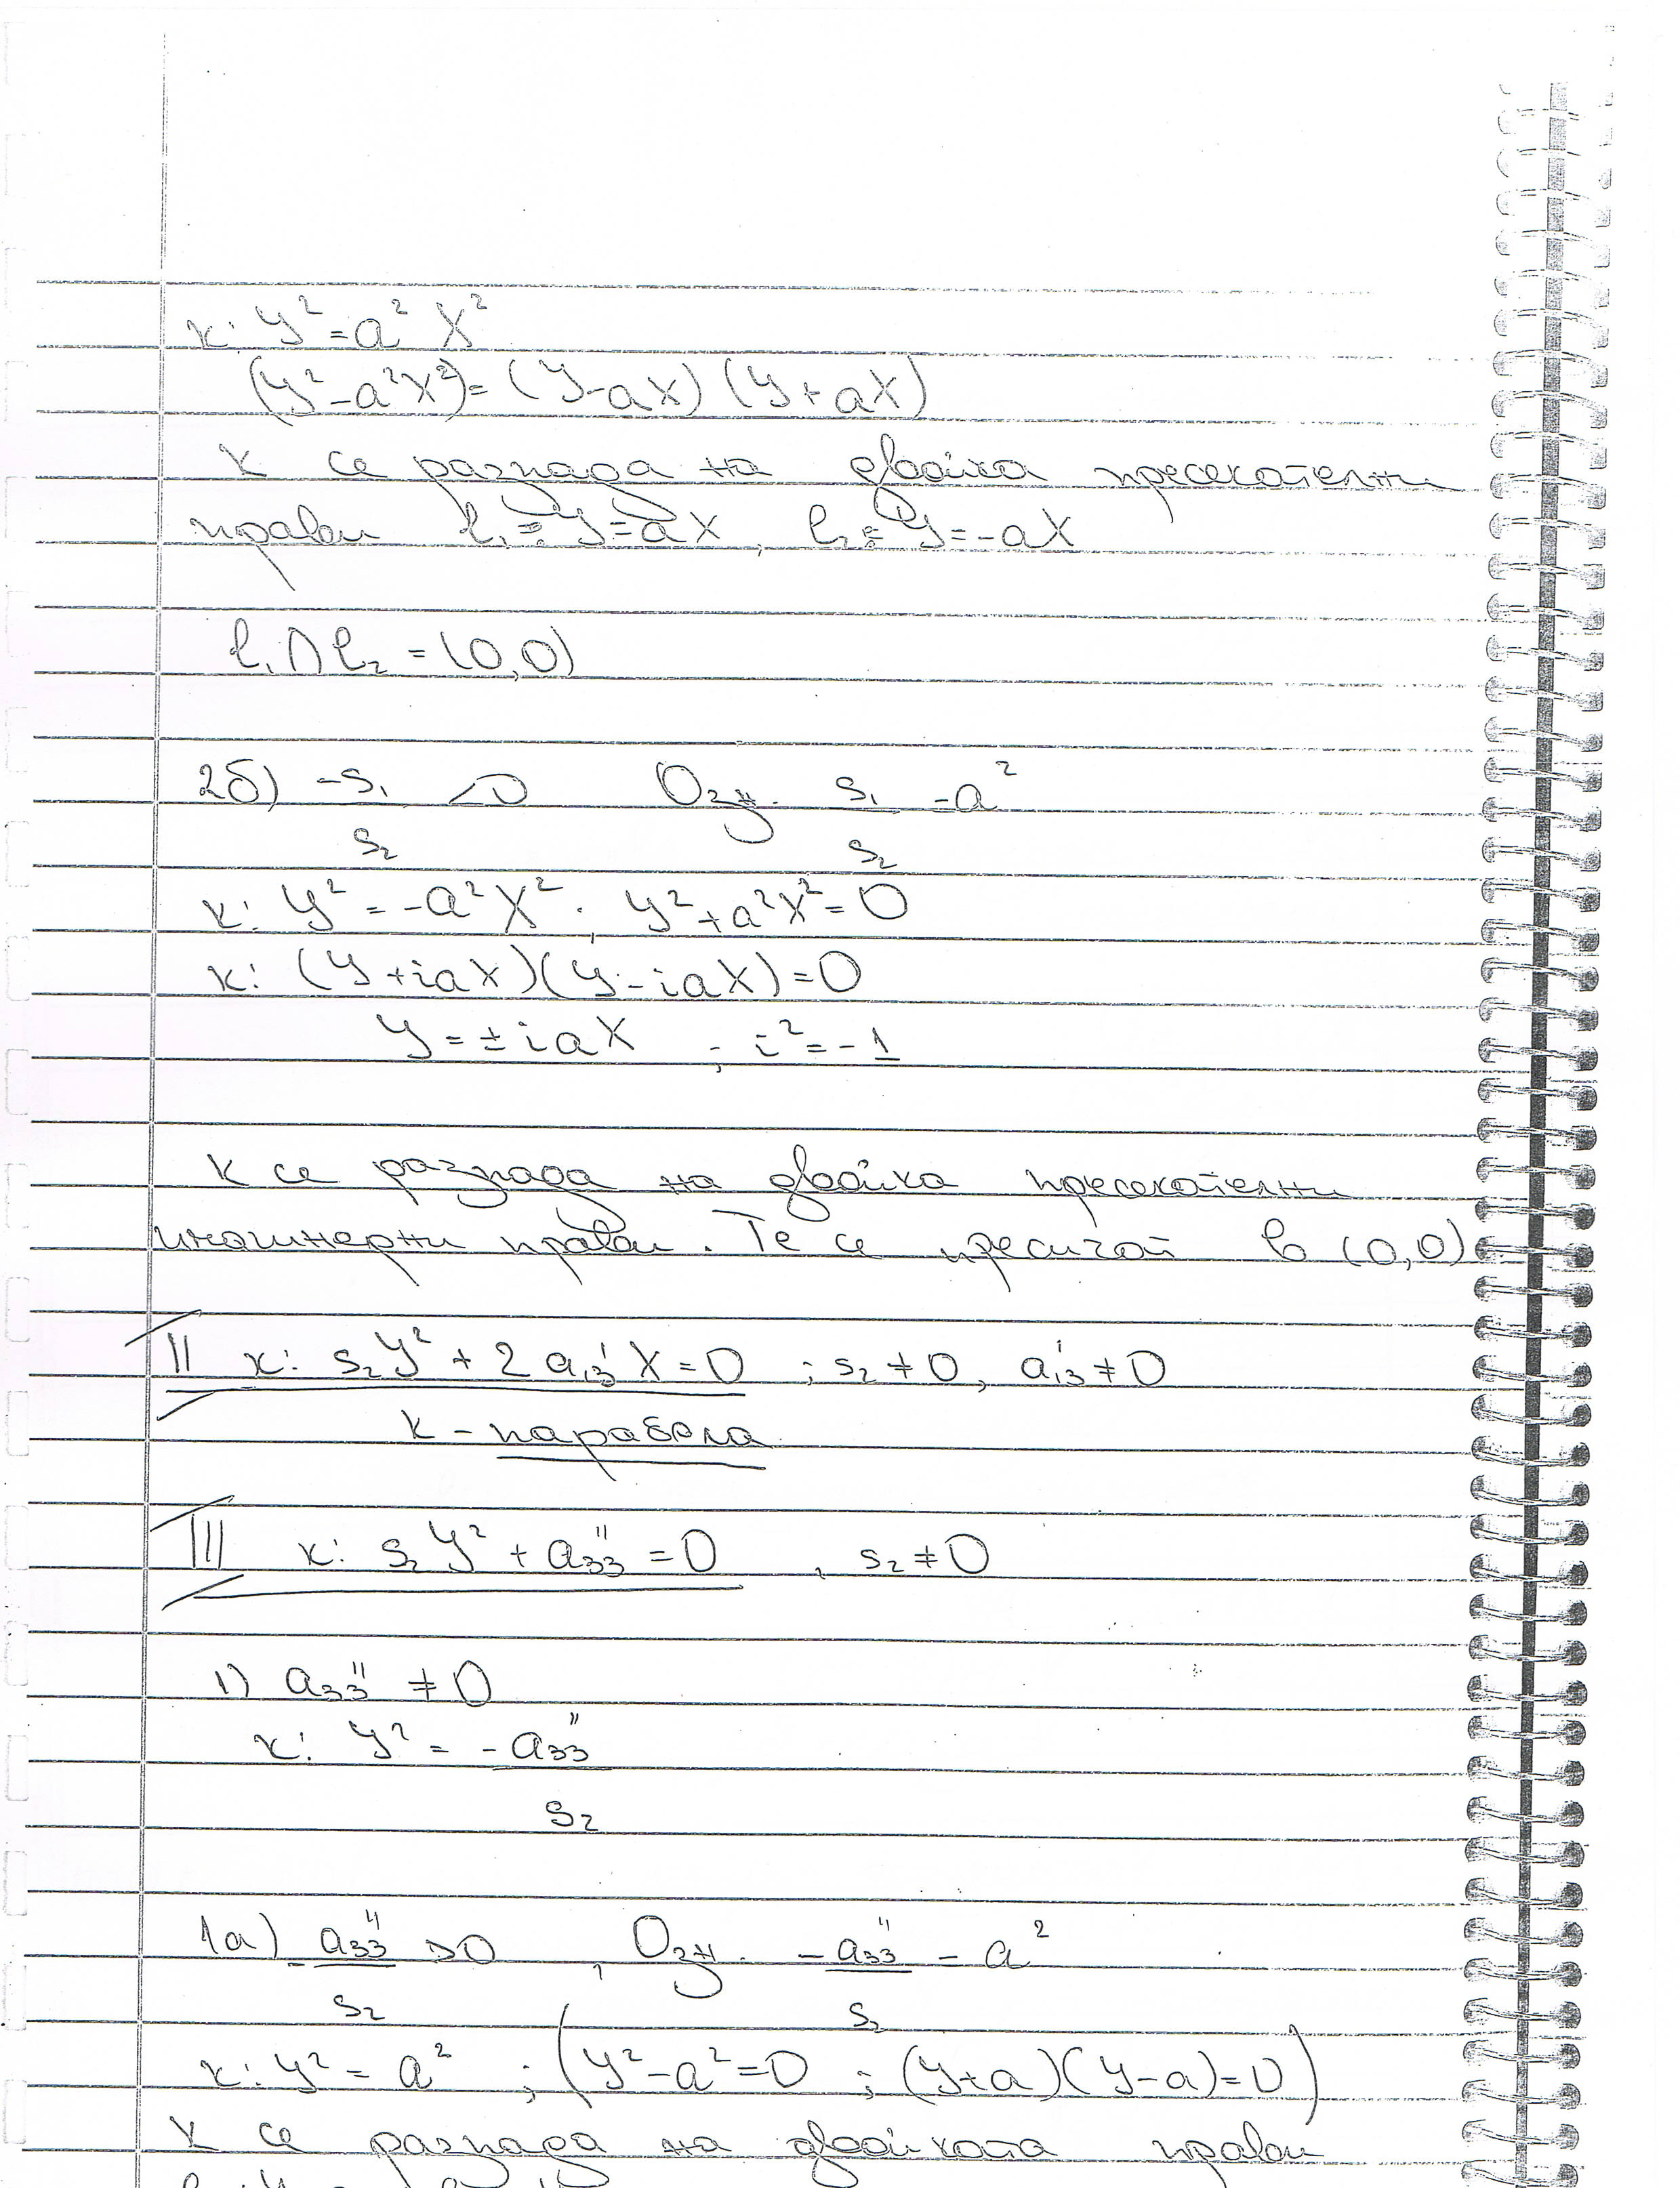 k: y² = a² x²
(y² - a²x²) = (y - ax) (y + ax)
k се разпада на двойка пресекателни
прави l₁ : y = ax, l₂ : y = -ax
l₁ ∩ l₂ = (0,0)
2б) -s₁/s₂ < 0 Озн. s₁/s₂ = a²
k: y² = -a² x² ; y² + a² x² = 0
k: (y + iax)(y - iax) = 0
y = ± iax ; i² = -1
k се разпада на двойка пресекателни
имагинерни прави. Те се пресичат в (0,0)
II k: s₂y² + 2a₁₃' x = 0 ; s₂ ≠ 0, a₁₃' ≠ 0
k - парабола
III k: s₂y² + a₃₃'' = 0 , s₂ ≠ 0
1) a₃₃'' ≠ 0
k: y² = -a₃₃''/s₂
1а) -a₃₃''/s₂ > 0 , Озн. -a₃₃''/s₂ = a²
k: y² = a² ; (y² - a² = 0 ; (y + a)(y - a) = 0)
k се разпада на двойката прави